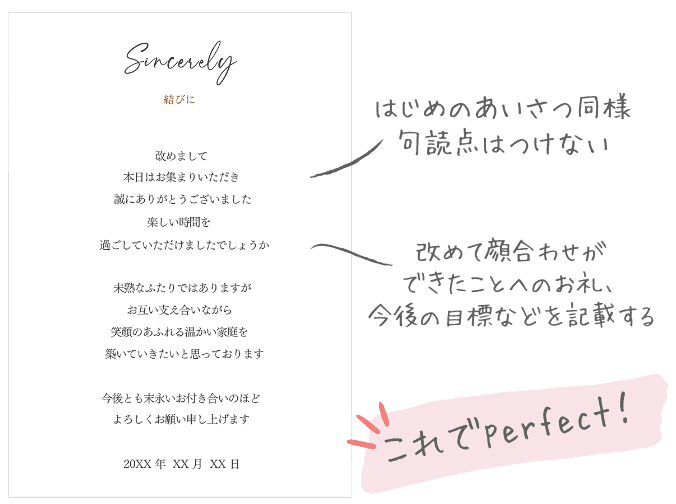 Sincerely
結びに
改めまして
本日はお集まりいただき
誠にありがとうございました
楽しい時間を
過ごしていただけましたでしょうか
未熟なふたりではありますが
お互い支え合いながら
笑顔のあふれる温かい家庭を
築いていきたいと思っております
今後とも末永いお付き合いのほど
よろしくお願い申し上げます
20XX 年 XX 月 XX 日
はじめのあいさつ同様
句読点はつけない
改めて顔合わせが
できたことへのお礼、
今後の目標などを記載する
これでperfect!